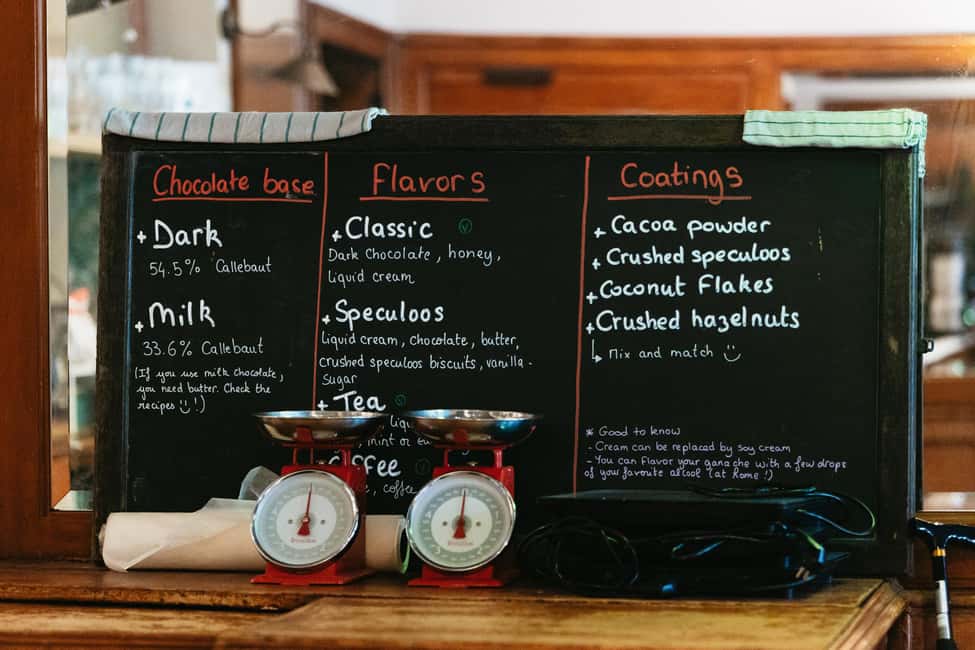 Chocolate base
+ Dark
54.5% Callebaut
+ Milk
33.6% Callebaut
(If you use milk chocolate,
you need butter. Check the
recipes !)
Flavors
+ Classic
Dark Chocolate, honey,
liquid cream
+ Speculoos
liquid cream, chocolate, butter,
crushed speculoos biscuits, vanilla-
sugar
+ Tea
mint or
coffee
Coatings
+ Cacoa powder
+ Crushed speculoos
+ Coconut Flakes
+ Crushed hazelnuts
Mix and match
* Good to know
- Cream can be replaced by soy cream
- You can flavor your ganache with a few drops
of your favorite alcool (at home !)